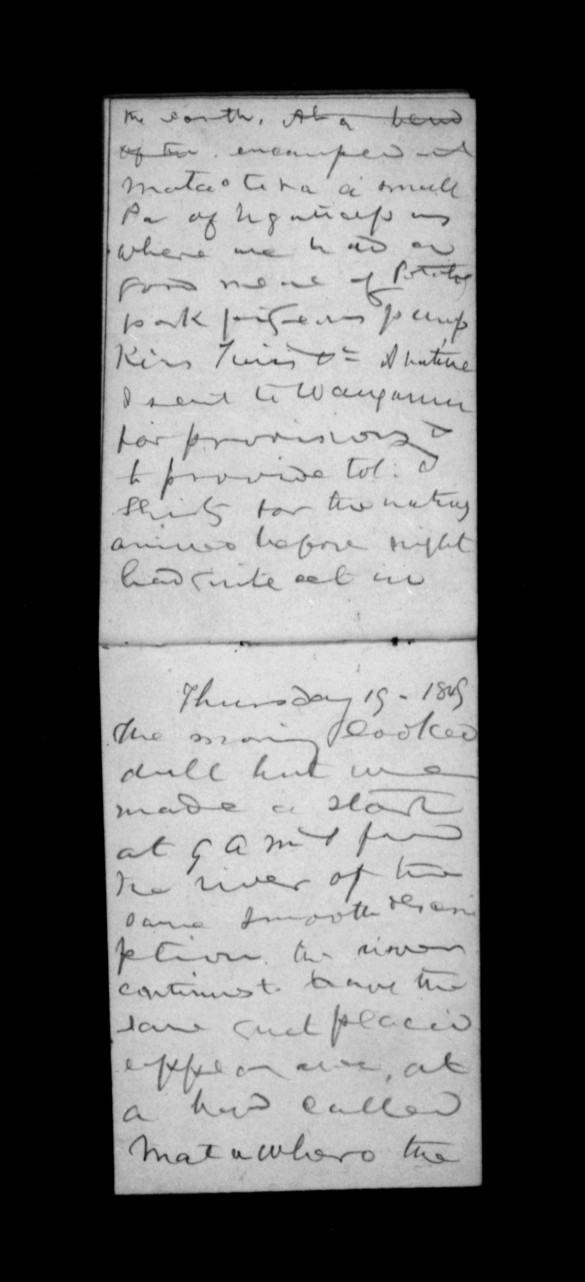 the earth. At a bend
of the encamped at
a small
Pa of
where we had a
good meal of Potatoes
pork pigeons pump
Kins &c A native
I sent to Wanganui
for provisions &
to provide tob. &
Shirts for the natives
arrived before night
had quite set in
Thursday 19 - 1849
The morning looked
dull but we
made a start
at 9 A M & found
the river of the
same smooth descri
ption. the river
continues to have the
same quiet placid
appearance, at
a bend called
Matawhero the